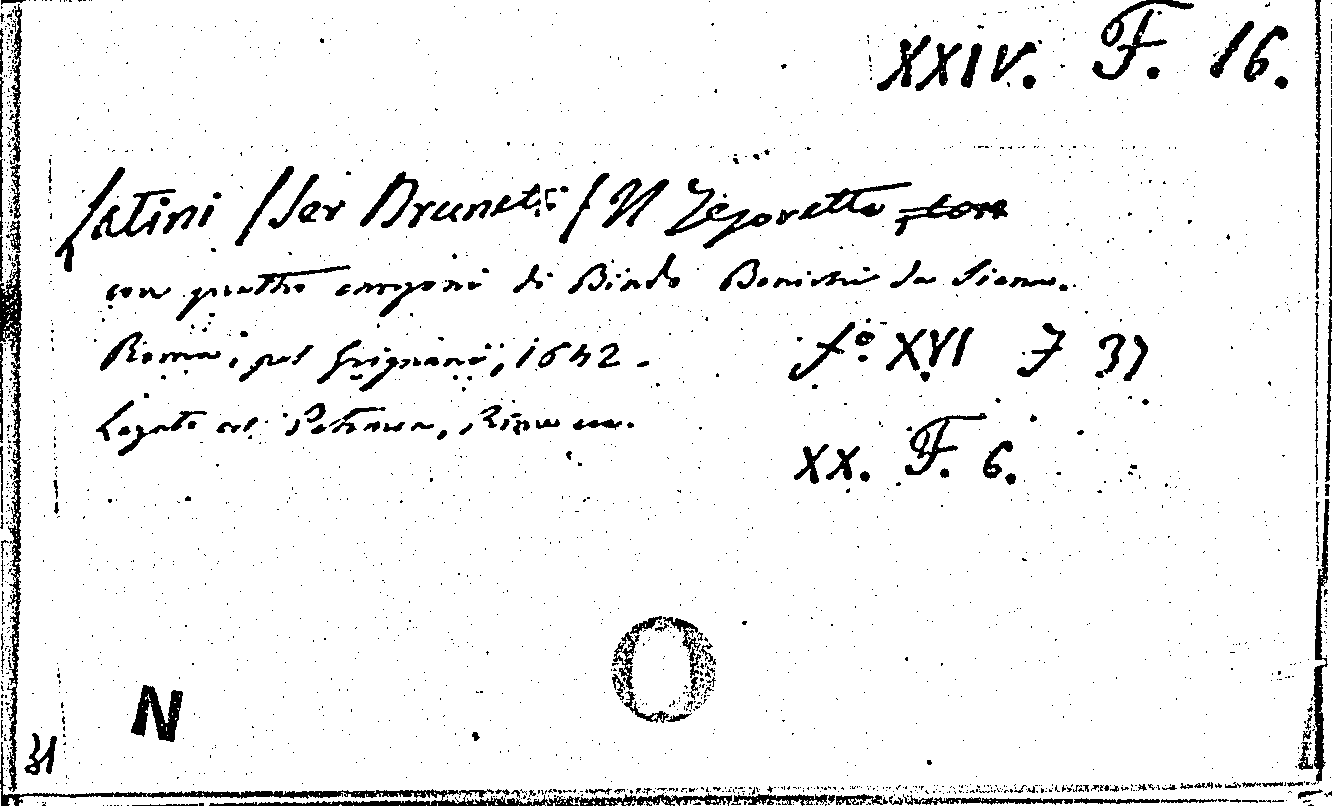 XXIV. F. 16.
Latini (Ser Brunetto) Il Tesoretto con
con quattro canzoni di Bindo Bonichi da Siena.
Roma, pel Grignani, 1642.
fo XVI F 37
Legato col Petrarca, Rime ecc.
XX. F. 6.
N
31